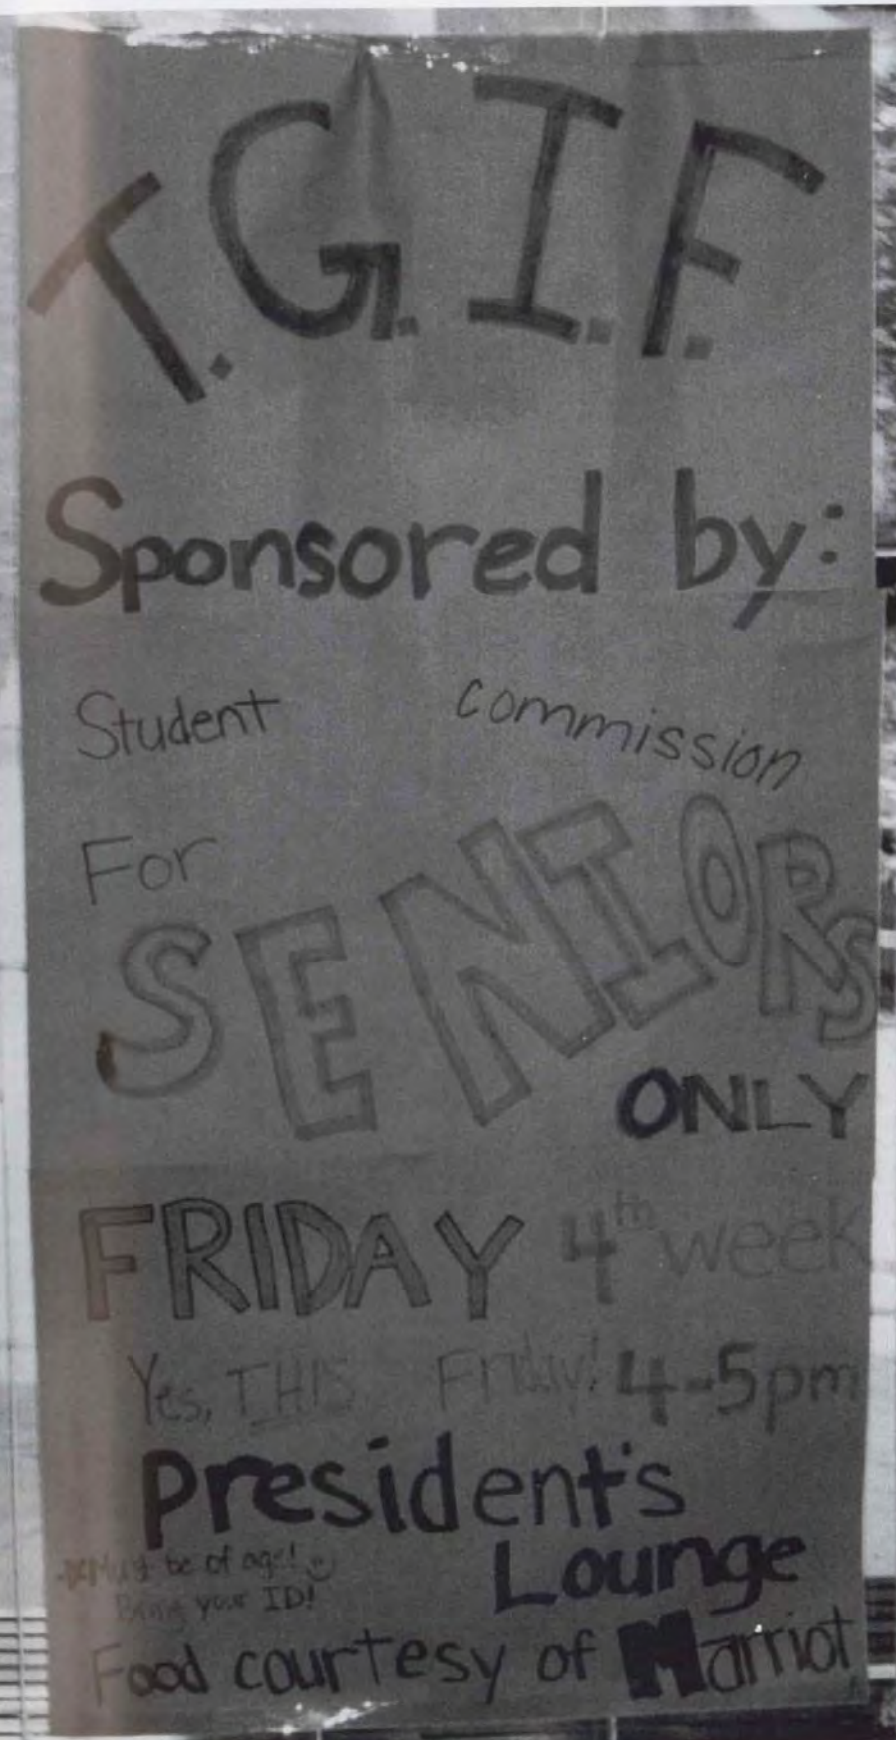 T.G.I.F.
Sponsored by:
Student commission
For
SENIORS
ONLY
FRIDAY 4th week
Yes, THIS Friday! 4-5pm
President's
Lounge
*Must be of age! :)
Bring your ID!
Food courtesy of Marriot